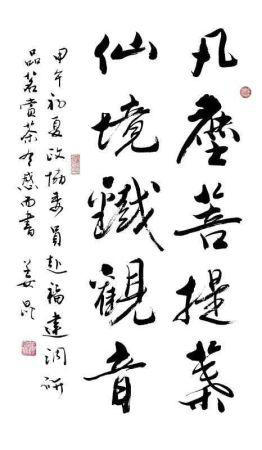 凡塵菩提葉
仙境鐵觀音
甲午初夏政协委員赴福建调研
品茗赏茶有感而書 姜昆